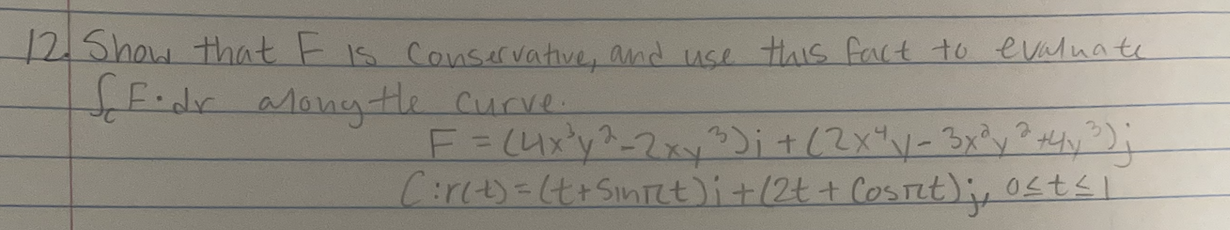 12. Show that F is conservative, and use this fact to evaluate
∫_C F·dr along the curve.
F = (4x³y² - 2xy³)i + (2x⁴y - 3x²y² + 4y³)j
C: r(t) = (t + sinπt)i + (2t + cosπt)j, 0 ≤ t ≤ 1